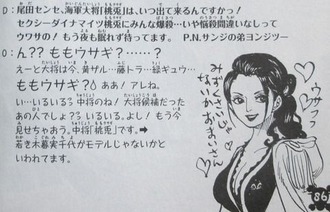 D：尾田センセ、海軍大将桃兎は、いつ出て来るんですかっ！
セクシーダイナマイツ桃兎にみんな爆殺…いや悩殺間違いなしって
ウワサの！もう夜も眠れず待ってます。 P.N.サンジの弟ヨンジツー
O：ん？？ももウサギ？……？
えーと大将は今、黄ザル…藤トラ…緑ギュウ…
ももウサギ？ ああ！アレね。
い…いるいる？中将のね！大将候補だった
あの人でしょ？いるいる。よし！もう今
見せちゃおう。中将「桃兎」です。➡
若き木暮実千代がモデルじゃないかと
いわれてます。
86